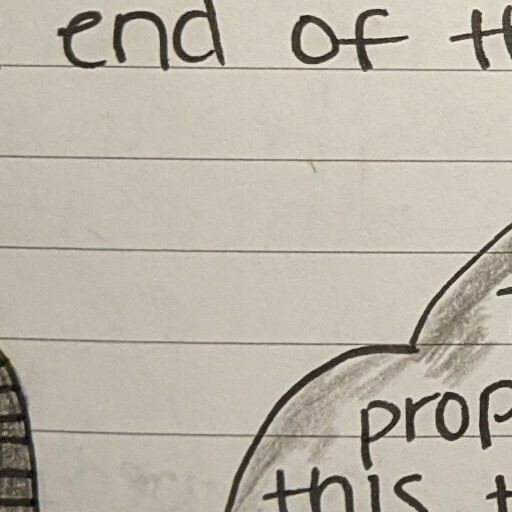 end of th
prop
this t